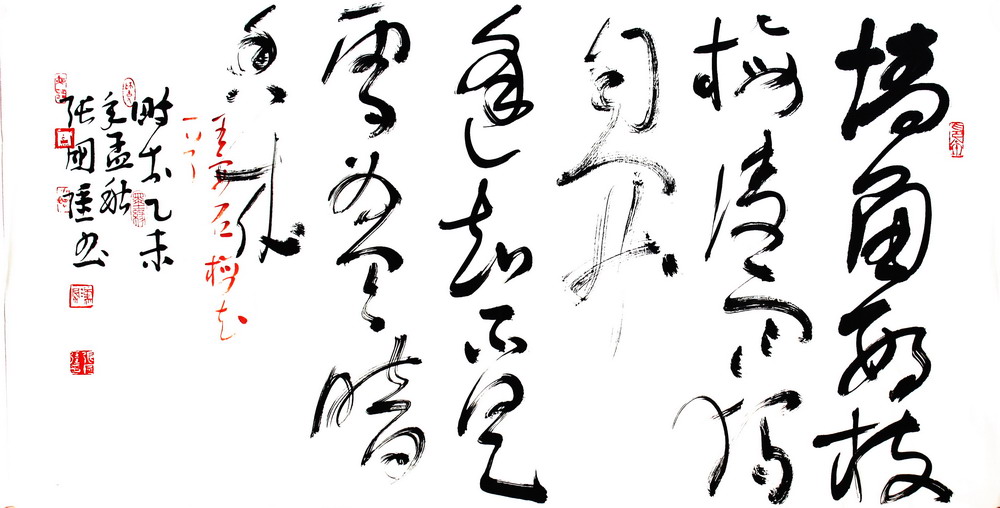 墙角数枝
梅凌寒独
自开
遥知不是
雪为有暗
香来
王安石梅花
一首
时在乙未
孟秋
张國书